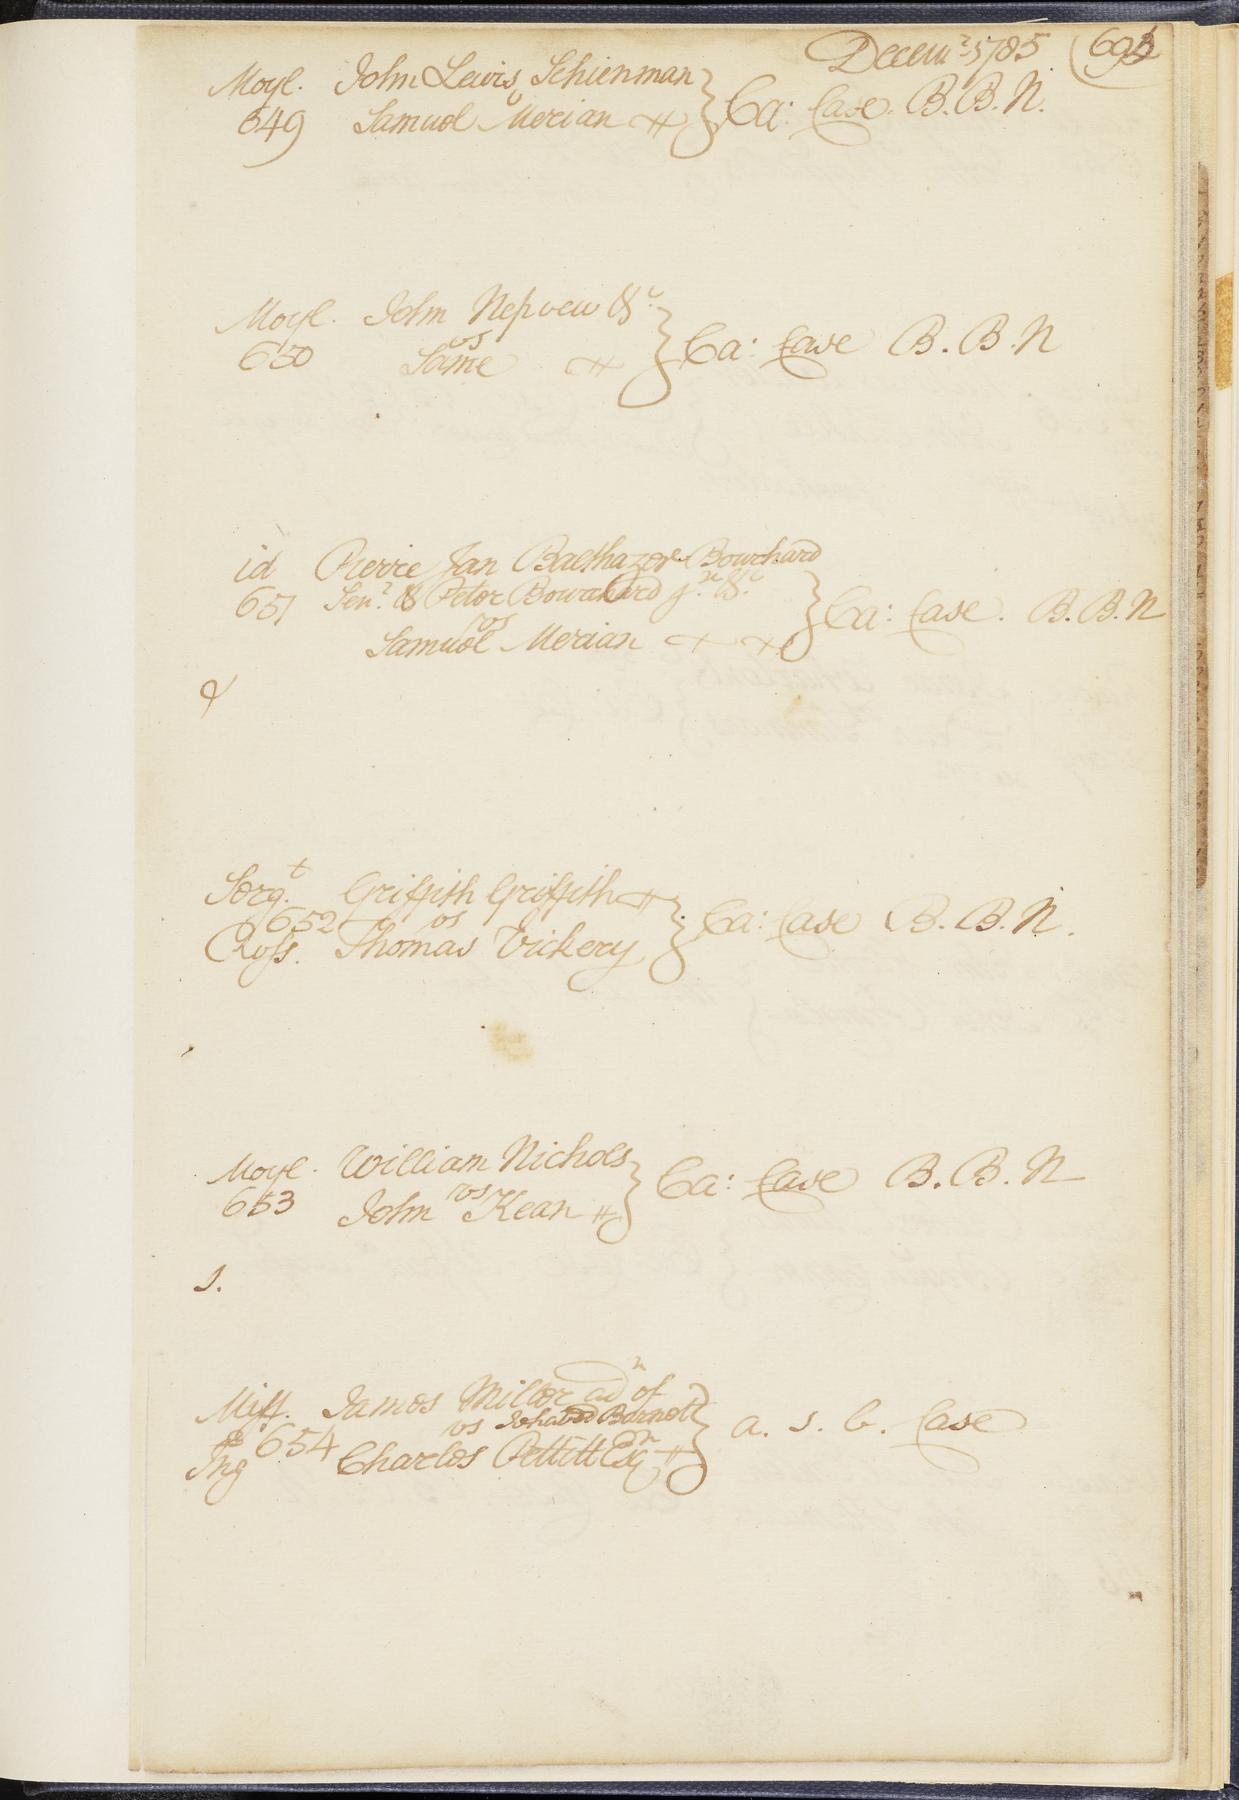 Decemr 1785
Moyl. John Lewis Schienman
vs
649 Samuel Merian Ca: Case. B. B. N.
Moyl. John Nepveu &c
vs
650 Same Ca: Case B. B. N
id Pierre Jan Balthazer Bourchard
651 Senr & Peter Bourchard jn &c
vs
Samuel Merian Ca: Case. B. B. N
Sergt Griffith Griffith
652 vs Ca: Case B. B. N.
Ross. Thomas Vickery
Moyl. William Nichols
vs Ca: Case B. B. N
653 John Kean
s.
Miff. James Miller adn of
vs Barnett
654 a. s. b. Case
Ing Charles Pettitt Esqr